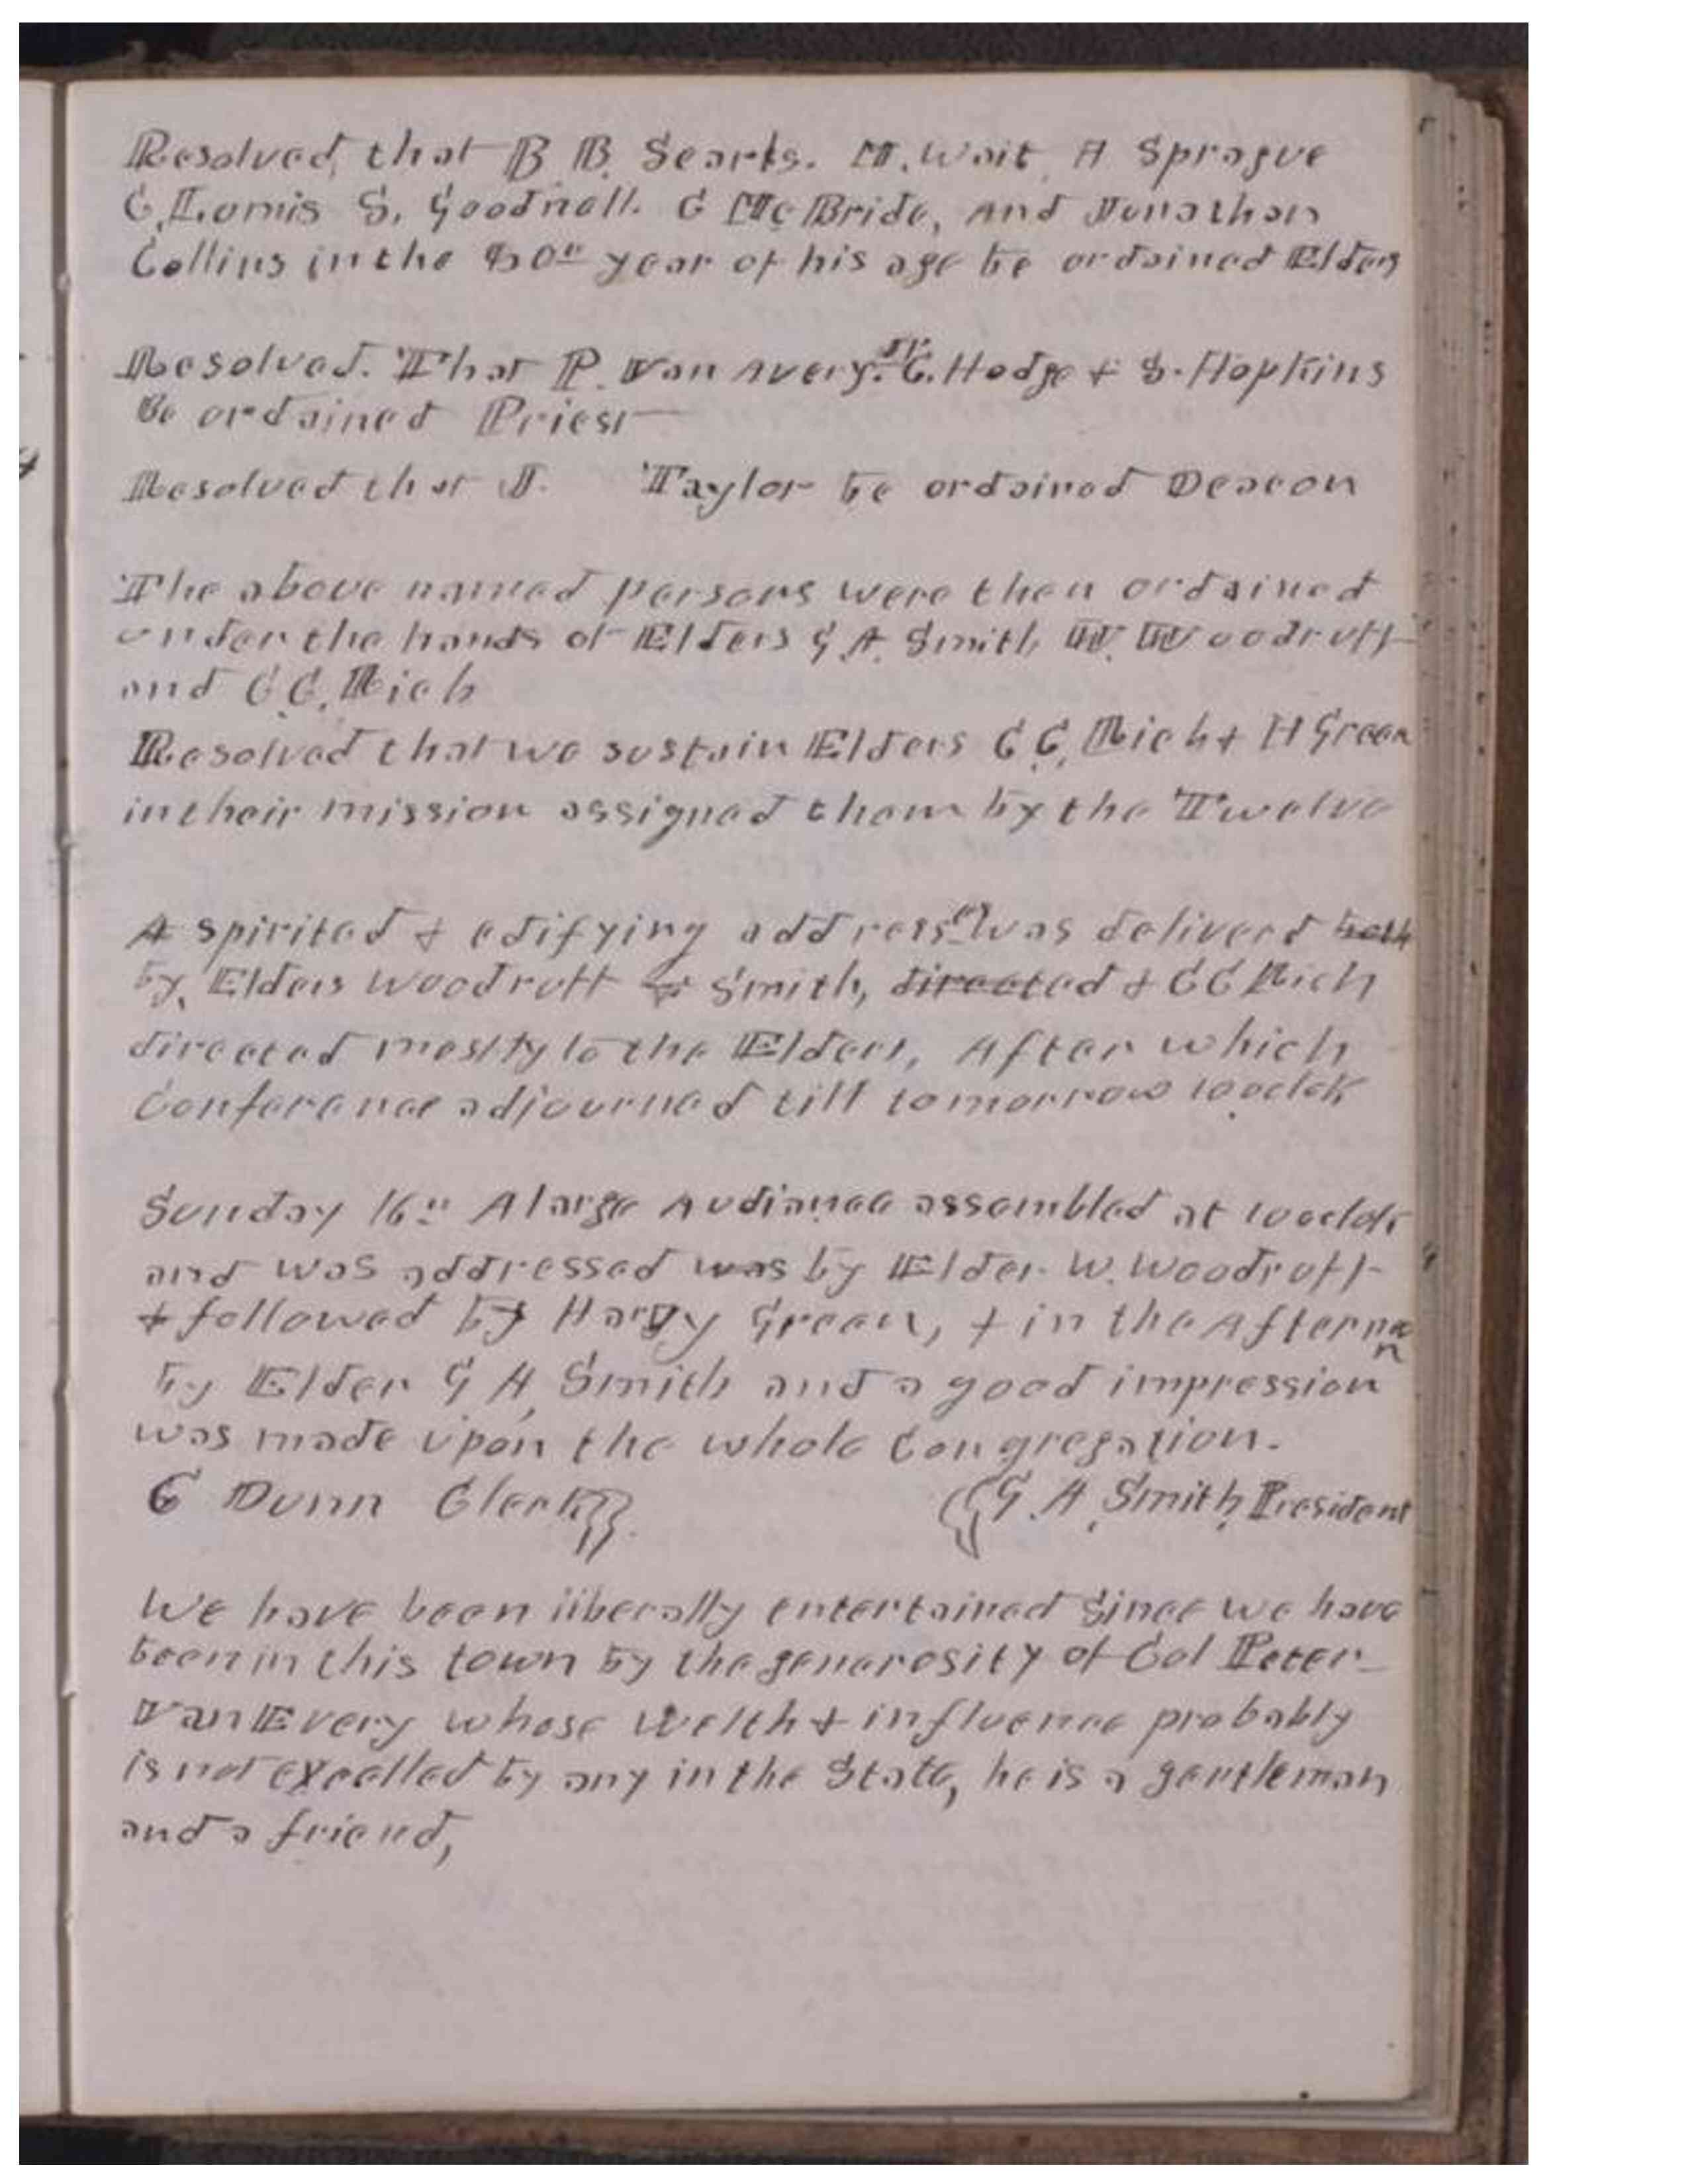 Resolved, that B B. Searls. M. Wait, A Sprague
C. Lomis S. Goodnall. C McBride, and Jonathan
Collins in the 80th year of his age be ordained Elders
Resolved. That P. Van Avery. Jr. C. Hodge & S. Hopkins
be ordained Priest
Resolved that J. Taylor be ordained Deacon
The above named persons were then ordained
under the hands of Elders G A. Smith W. Woodruff
and C C. Rich
Resolved that we sustain Elders C C. Rich & H Green
in their mission assigned them by the Twelve
A spirited & edifying address es was deliverd
by, Elders Woodruff & Smith, directed & C C Rich
directed mostly to the Elders, After which
Conference adjourned till tomorrow 10 oclok
Sunday 16th A large Audiance assembled at 10 oclok
and was addressed was by Elder W. Woodruff
& followed by Harvy Green, & in the Afternn
n
by Elder G A, Smith and a good impression
was made upon the whole Congregation.
C Dunn Clerk G. A. Smith, President
We have been liberally entertained since we have
been in this town by the generosity of Col Peter
Van Every whose Welth & influence probably
is not excelled by any in the State, he is a gentleman
and a friend,